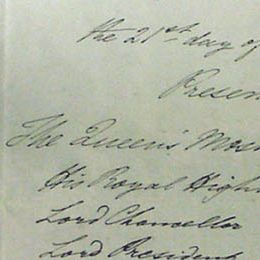 the 21st day of
Presen
The Queens' Mos
His Royal High
Lord Chancellor
Lord President